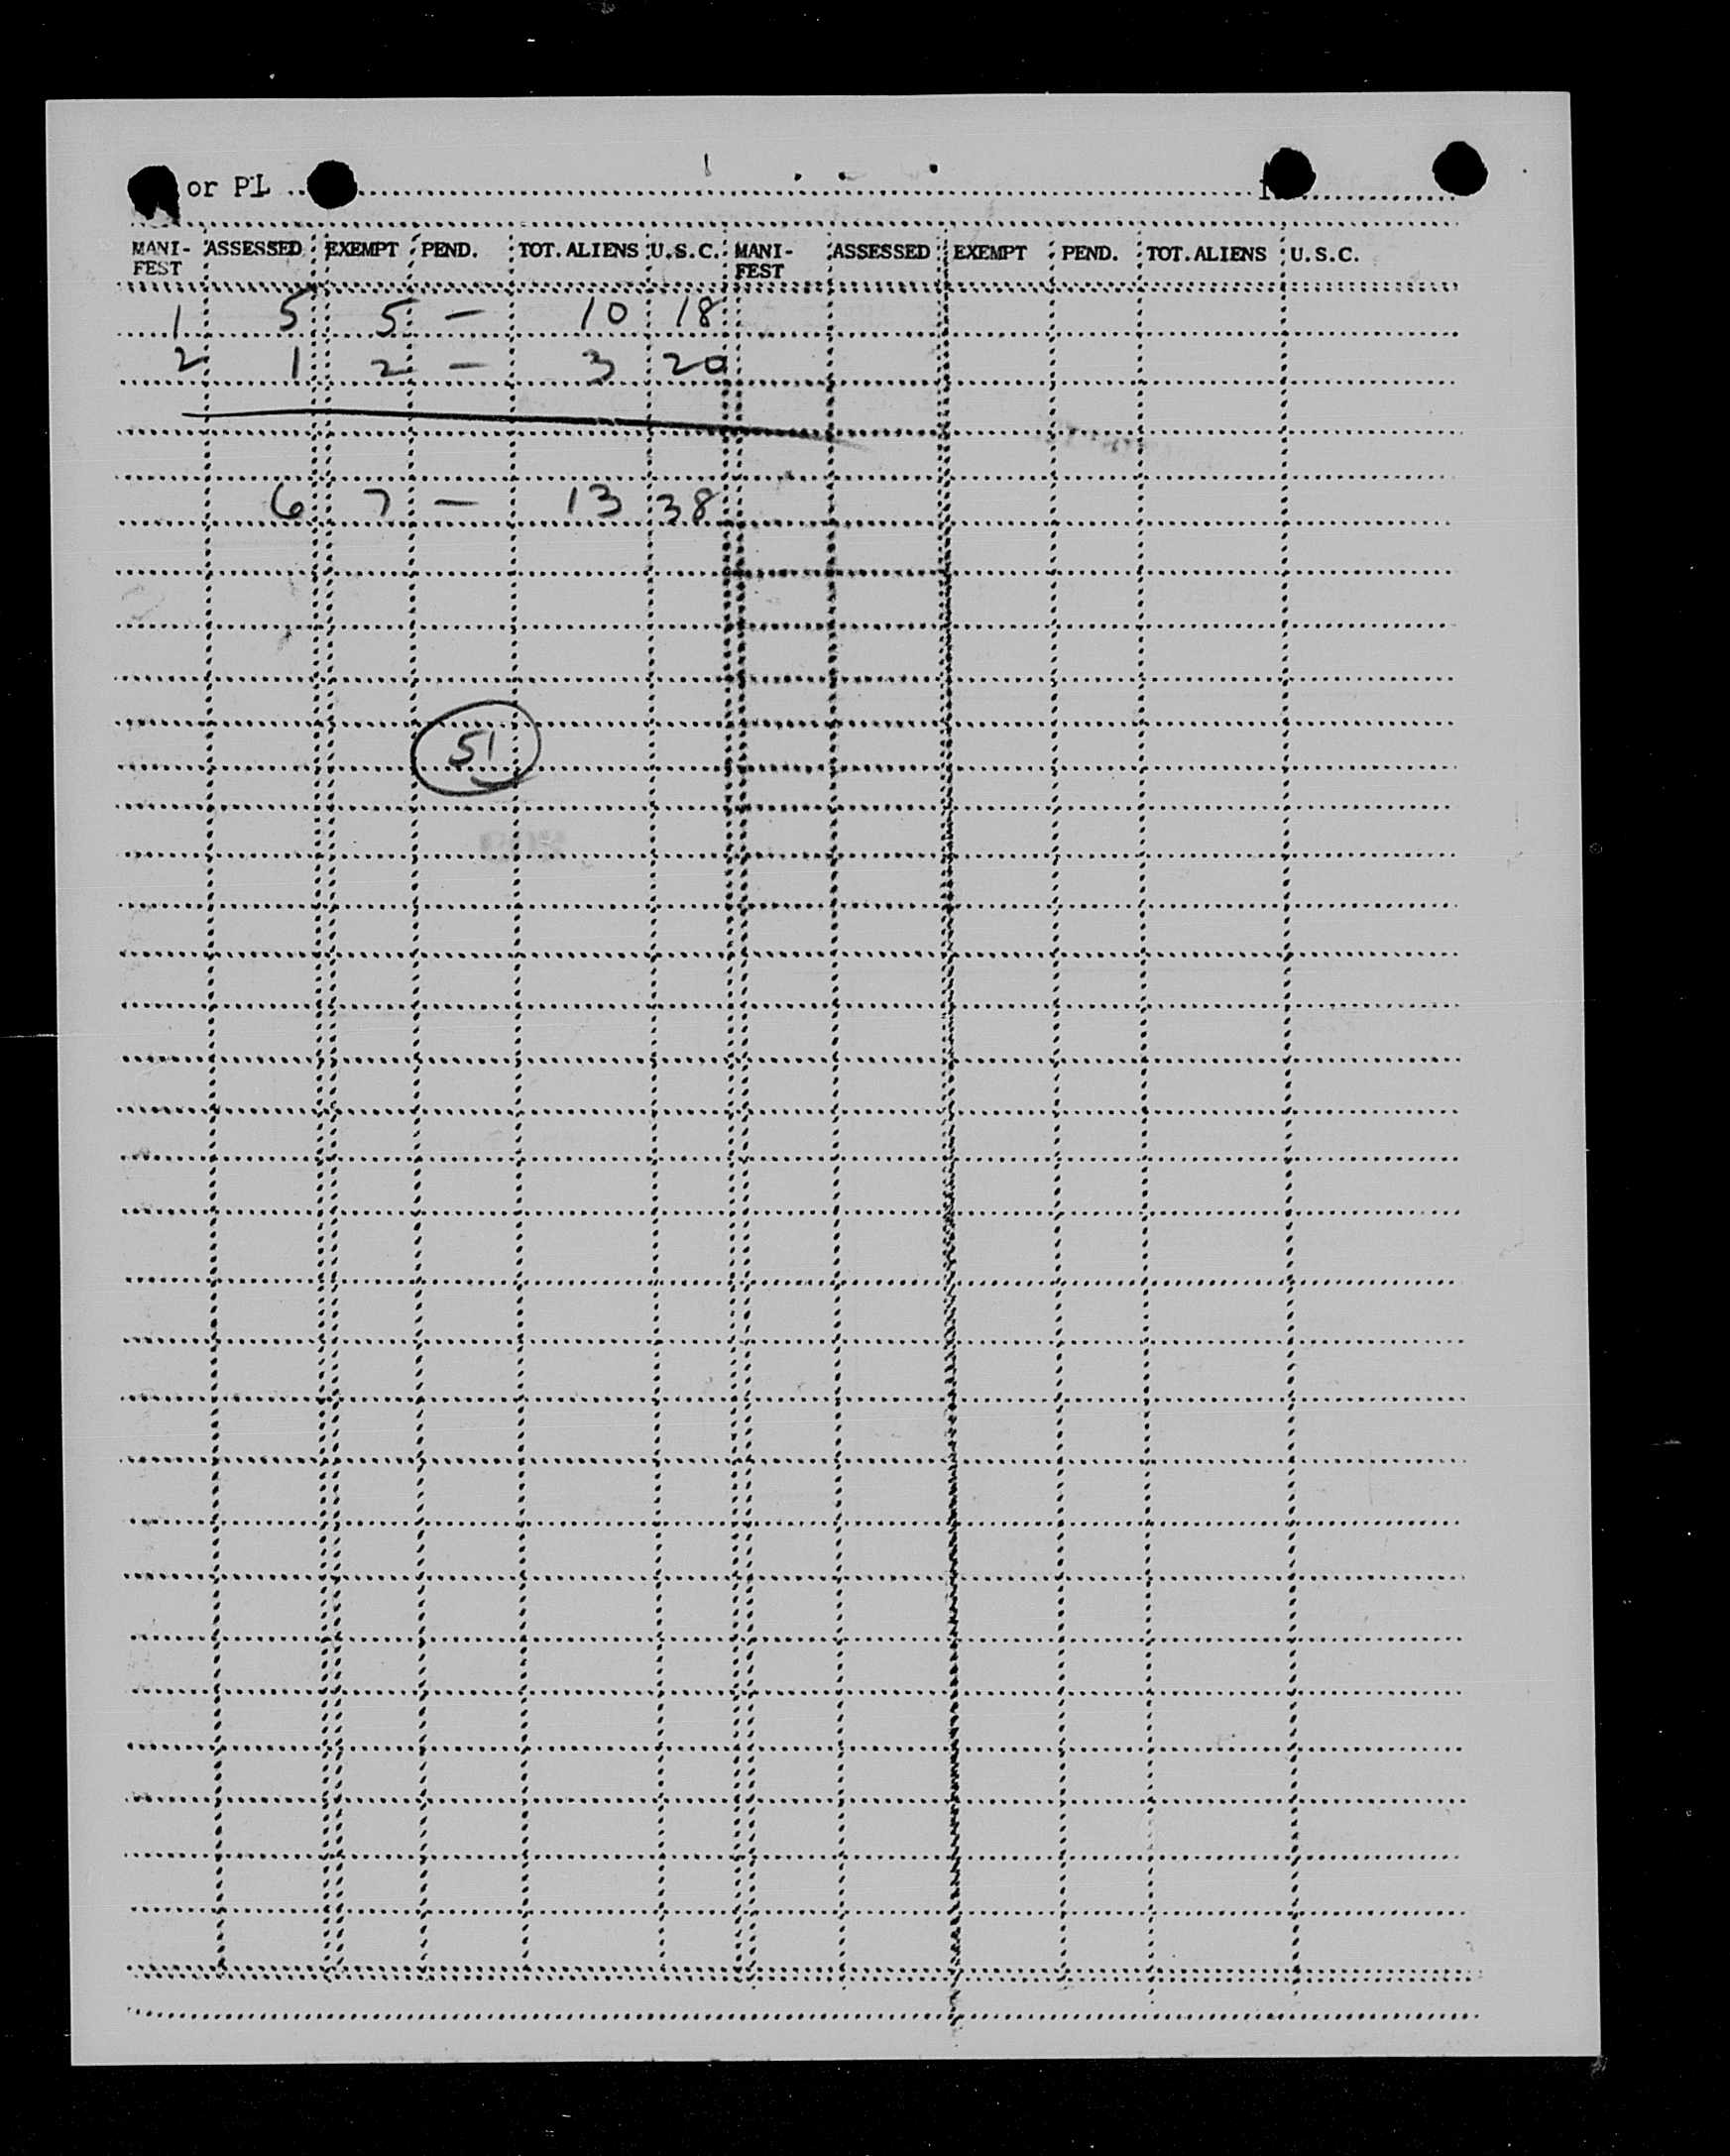 or PL
MANI- ASSESSED EXEMPT PEND. TOT. ALIENS U.S.C. MANI- ASSESSED EXEMPT PEND. TOT. ALIENS U.S.C.
FEST FEST
1 5 5 — 10 18
2 1 2 — 3 20
6 7 — 13 38
51